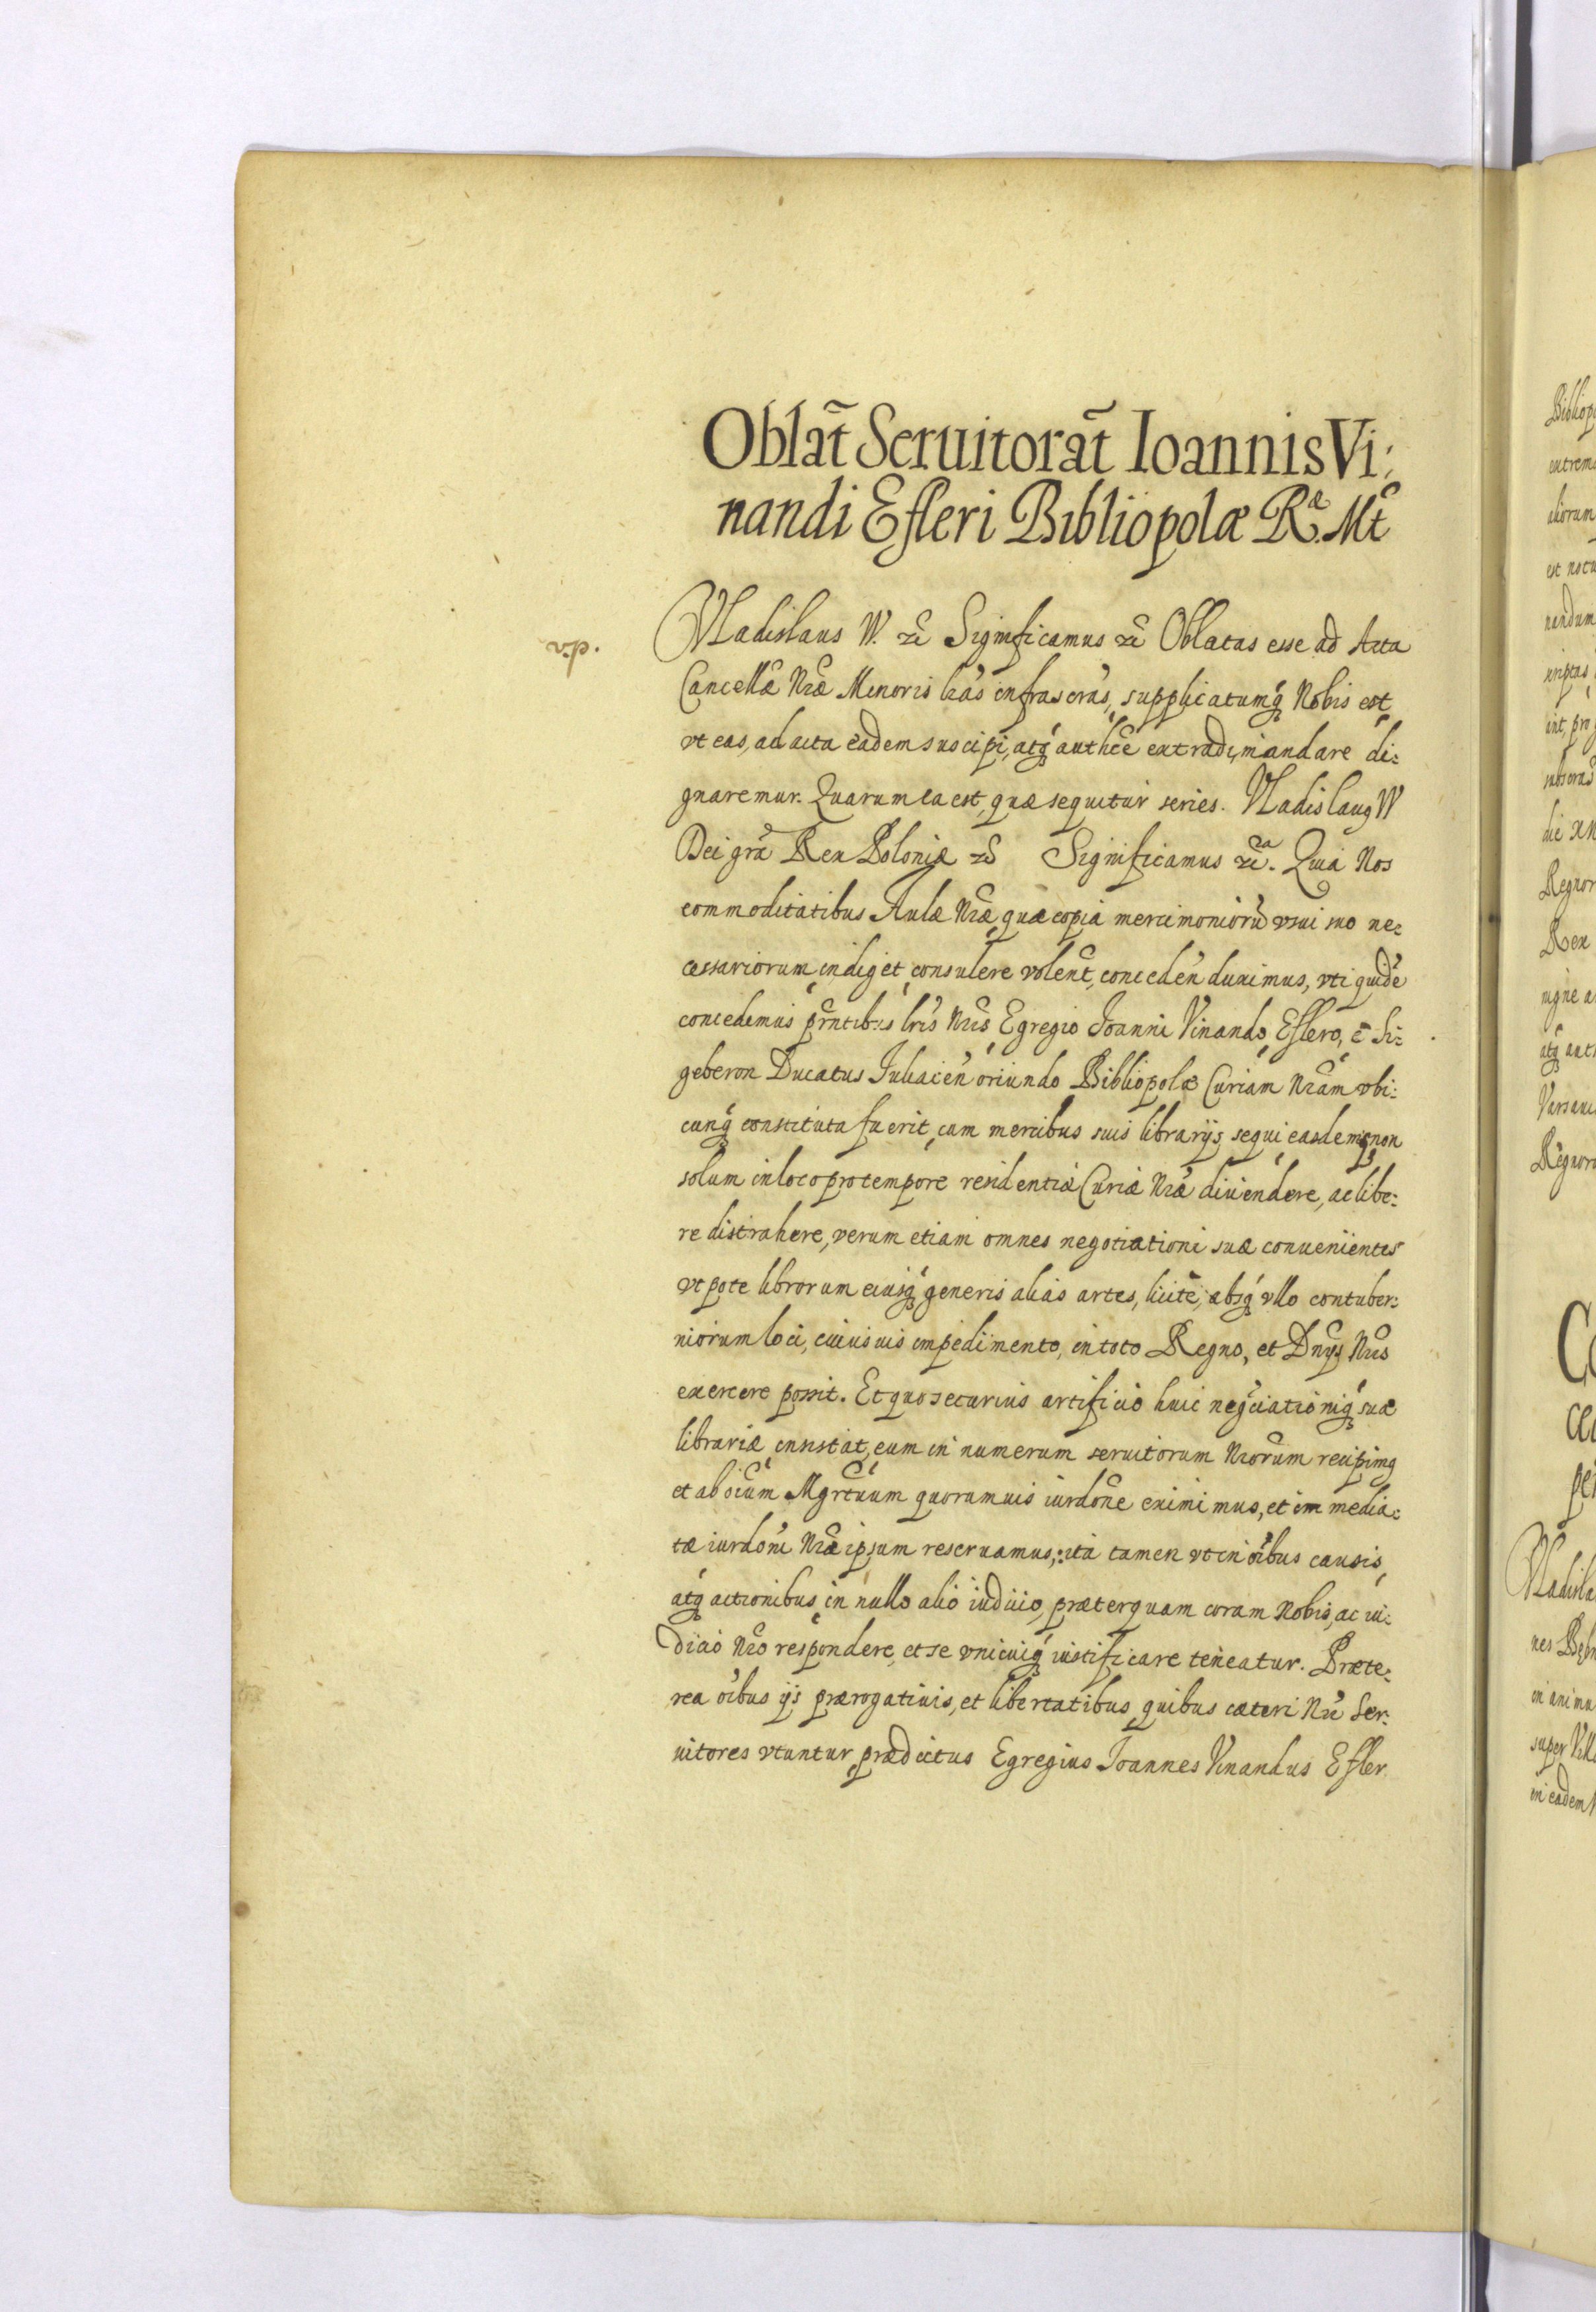 Oblat̃ Seruitorat̃ Ioannis Vi:
nandi Esleri Bibliopolæ Ræ. Mt̃
Vladislaus IV. etc̃ Significamus etc̃ Oblatas esse ad Acta
Cancellæ Nræ Minoris lras infrascras, supplicatumq́ Nobis est
vt eas, ad acta eadem suscipi, atq́ authce extradi, mandare di:
gnaremur. Quarum ea est, quæ sequitur series. Vladislaus IV
Dei gra Rex Poloniæ etc Significamus etc. Quia Nos
commoditatibus Aulæ Nræ, quæ copia mercimoniorũ vsui suo ne:
cessariorum indiget, consulere volent, conceden duximus, vti quidẽ
concedimus prntibus lris Nris Egregio Joanni Vinando Eslero, è Si:
geberon Ducatus Juliacen oriundo Bibliopolæ Curiam Nram vbi:
cunq́ constituta fuerit, cum mercibus suis librarijs sequi easdemq́ non
solum in loco pro tempore residentiæ Curiæ Nræ diuendere, ac libe:
re distrahere, verum etiam omnes negotiationi suæ conuenientes
vt pote librorum eiusq́ generis alias artes, licitè, absq́ vllo contuber:
niorum loci, cuiusuis impedimento, in toto Regno, et Dnijs Nris
exercere possit. Et quo securius artificio huic negciationiq́ suæ
librariæ insistat, eum in numerum seruitorum Nrorum recipimus
et ab oium Mgrtuum quorumuis iurdone eximimus, et immedia:
tæ iurdoni Nræ ipsum reseruamus, ita tamen vt in oibus causis
atq́ actionibus in nullo alio iudicio, præterquam coram Nobis, ac iu:
dicio Nro respondere, et se vnicuiq́ iustificare teneatur. Præte:
rea oibus ijs prærogatiuis, et libertatibus quibus cæteri Nri Ser:
uitores vtuntur, prædictus Egregius Joannes Vinandus Esler